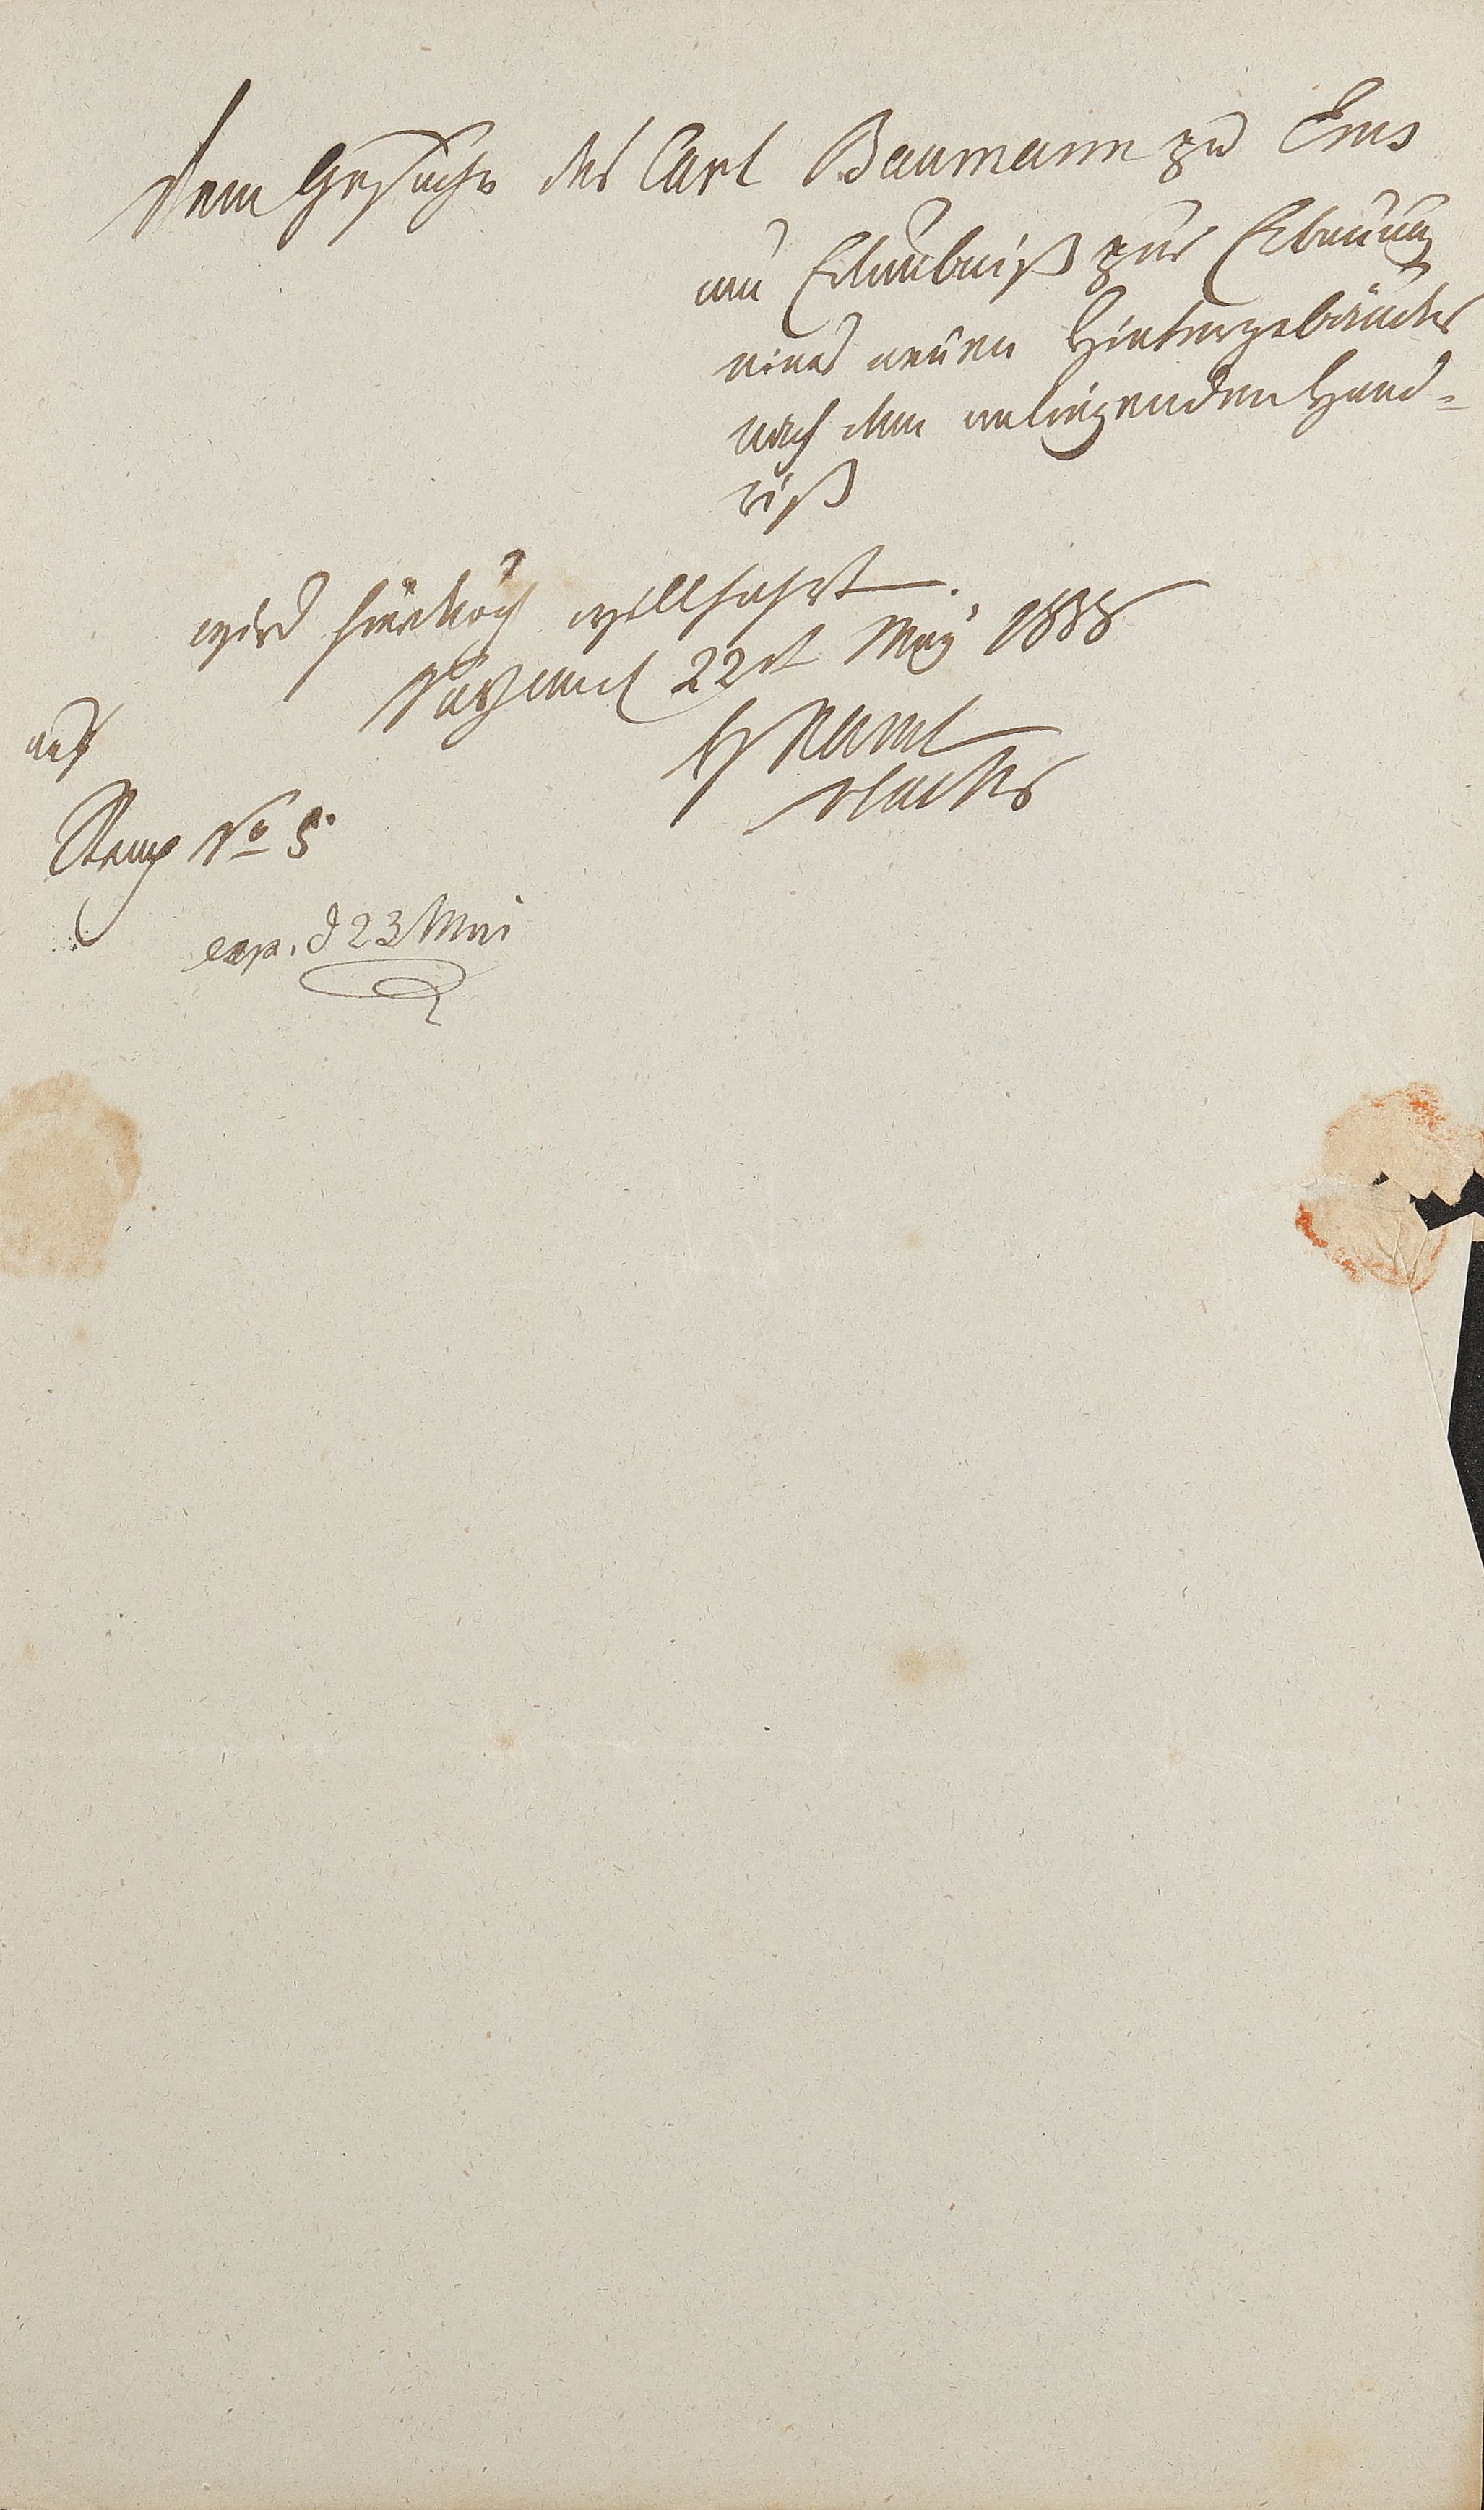 Dem Gesuche des Carl Baumann zu Ems
um Erlaubniß zur Erbauung
eines neuen Hintergebäudes
nach dem anliegenden Hand=
riß
wird hierdurch willfahrt.
22st May 1838
auf
Stemp No 5.
exp. d 23 Mai